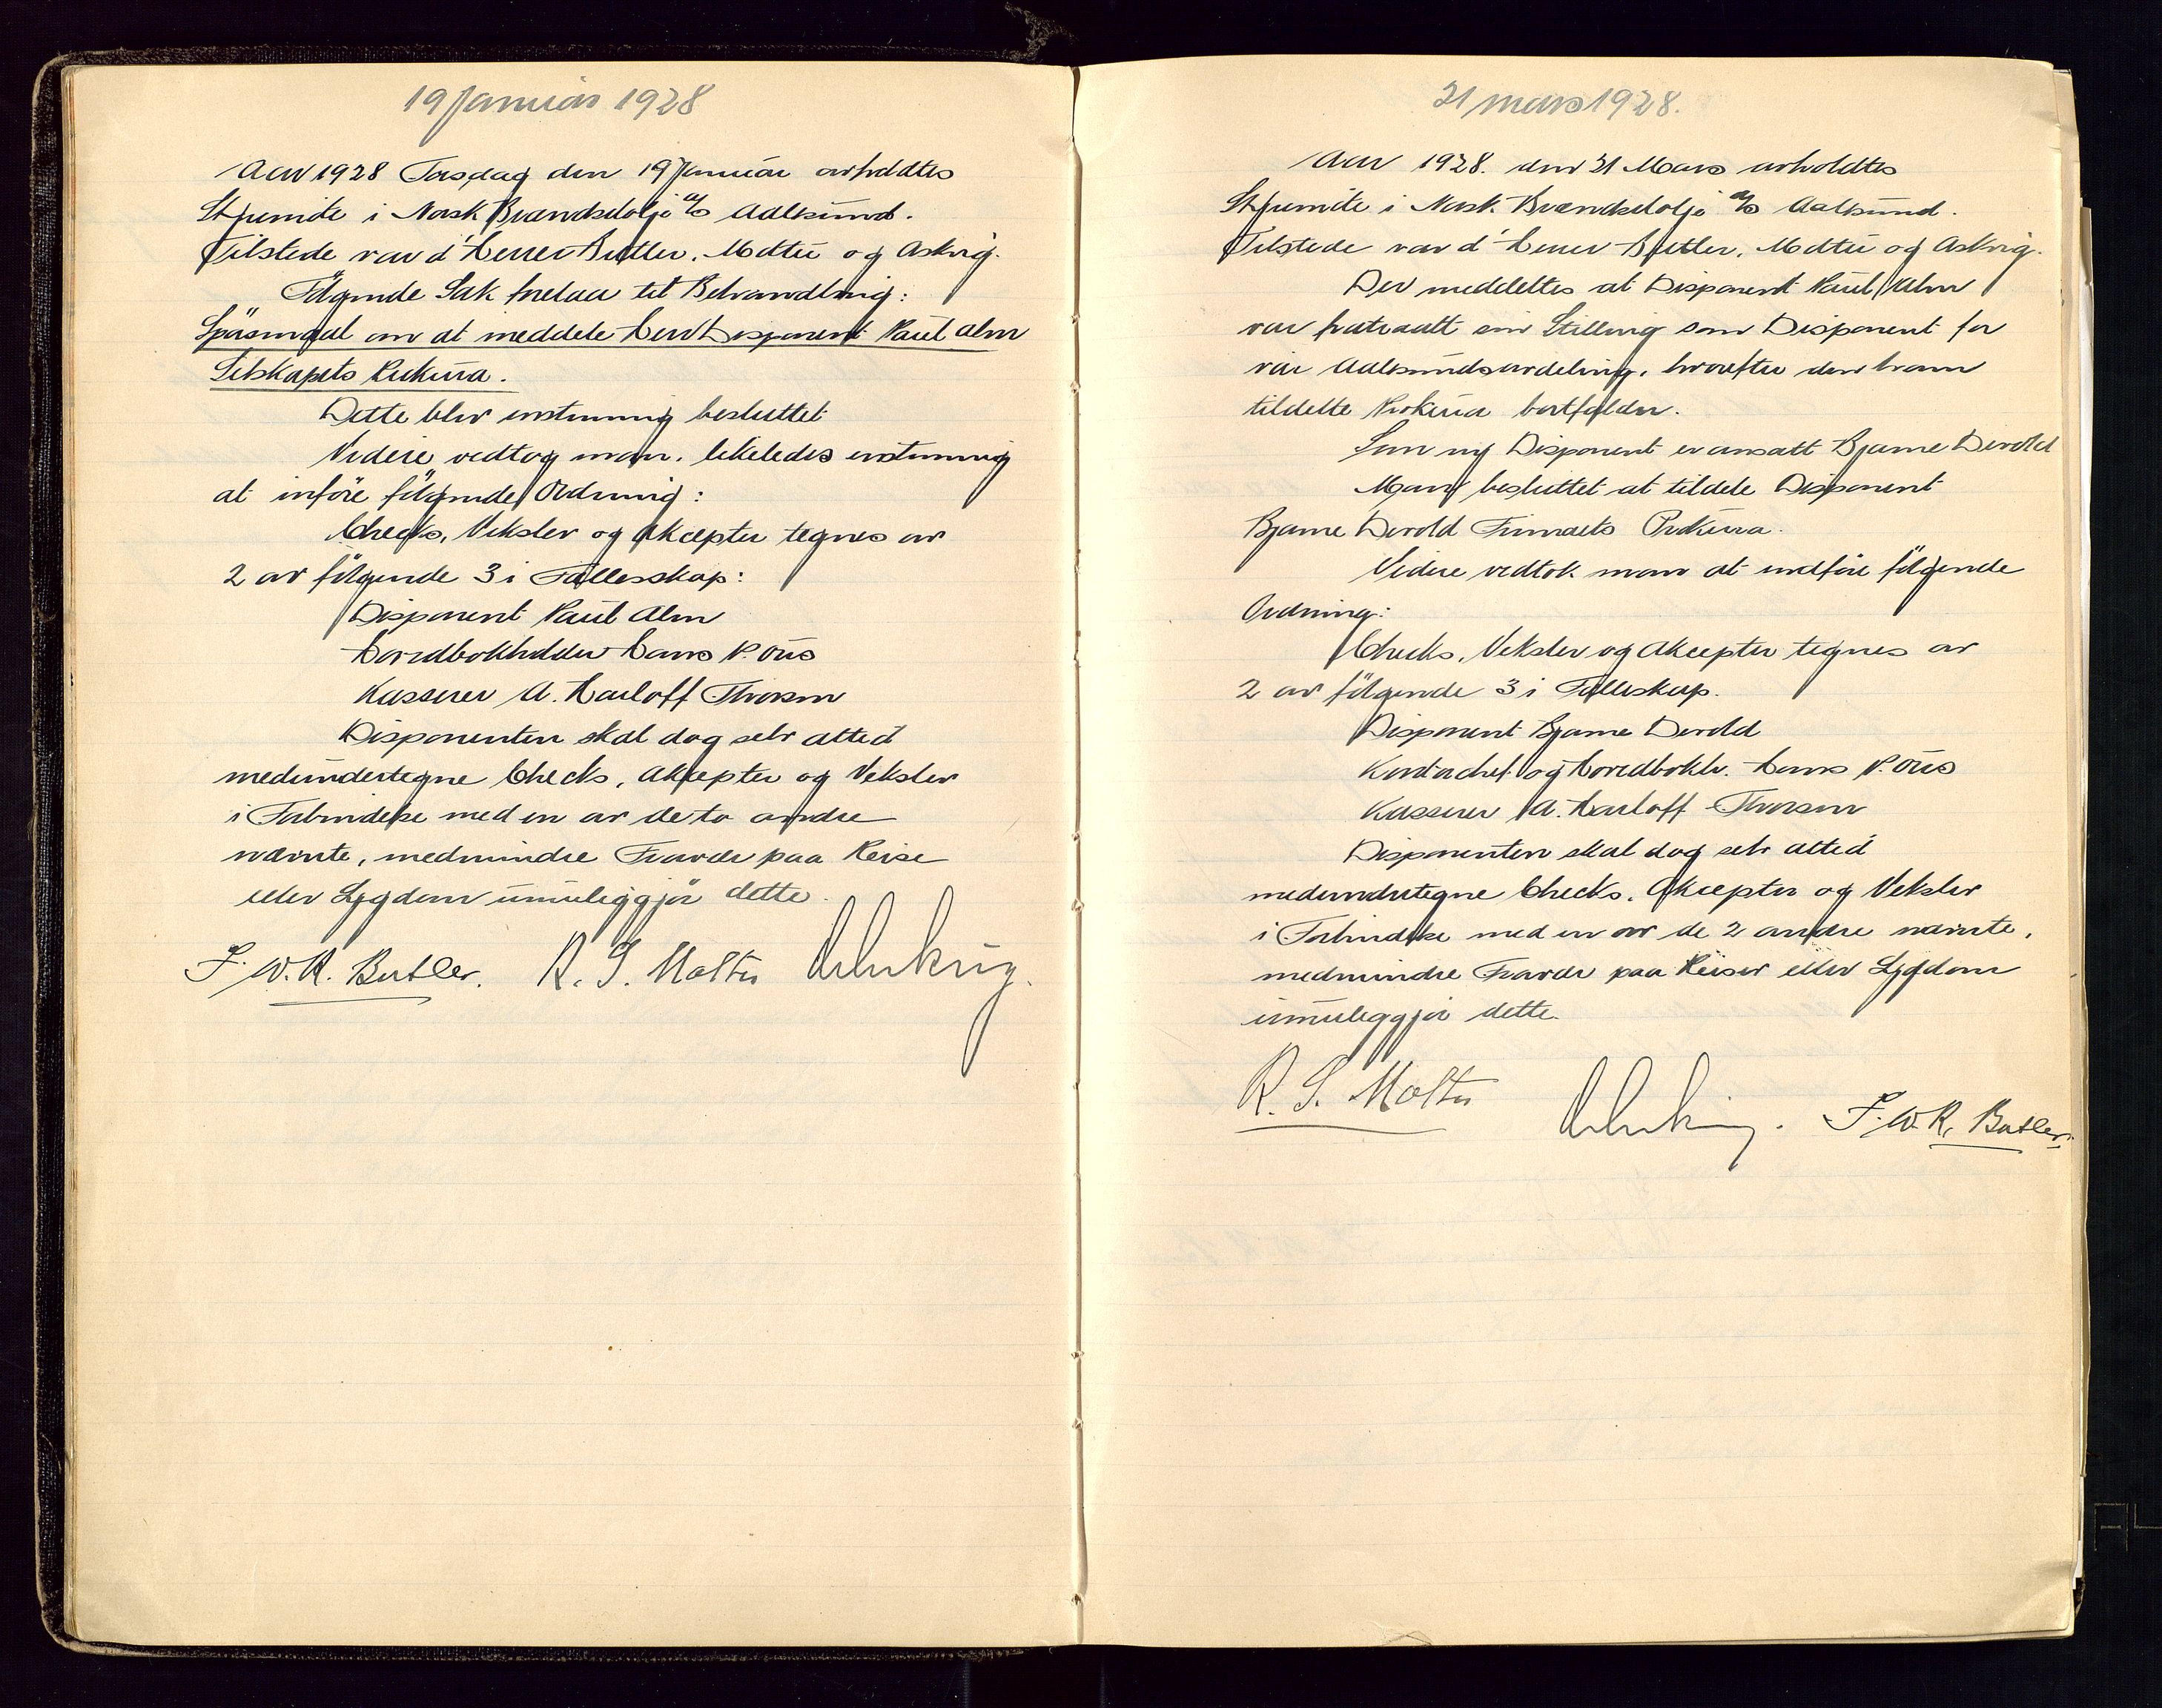 19 januar 1928
Aar 1928 Torsdag den 19 Januar avholdtes
Styremöte i Norsk Brændselolje A/S Aalesund.
Tilstede var d'Herrer Butler, Molter og Askvig.
Fölgende Sak forelaa til Behandling:
Spörsmaal om at meddele Herr Disponent Paul Alm
Selskapets Prokura.
Dette blev enstemmig besluttet
Videre vedtog man, likeledes enstemmig
at införe fölgende Ordning:
Checks, Veksler og Akcepter tegnes av
2 av fölgende 3 i Fællesskap:
Disponent Paul Alm
Hovedbokholder Hans P. Öus
Kasserer A. Harloff Thorsen
Disponenten skal dog selv alltid
medundertegne Checks, Akcepter og Veksler
i Forbindelse med en av de to andre
nævnte, medmindre Fravær paa Reise
eller Sygdom umuliggjör dette.
F. W. R. Butler. R. S. Molter Askvig.
21 mars 1928.
Aar 1928. den 21 Mars avholdtes
Styremöte i Norsk Brændselolje A/S Aalesund.
Tilstede var d'Herrer Butler, Molter og Askvig.
Der meddeltes at Disponent Paul Alm
var fratraadt sin Stilling som Disponent for
vår Aalesundsavdeling, hvorefter den ham
tildelte Prokura bortfalder.
Som ny Disponent er ansatt Bjarne Devold
Man besluttet at tildele Disponent
Bjarne Devold Firmaets Prokura.
Videre vedtok man at indföre fölgende
Ordning:
Checks, Veksler og Akcepter tegnes av
2 av fölgende 3 i Fælleskap.
Disponent Bjarne Devold
Kontorchef og Hovedbokh. Hans P. Öus
Kasserer A. Harloff Thorsen
Disponenten skal dog selv alltid
medundertegne Checks, Akcepter og Veksler
i Forbindelse med en av de 2 andre nævnte,
medmindre Fravær paa Reiser eller Sygdom
umuliggjör dette.
R. S. Molter Askvig. F. W. R. Butler.